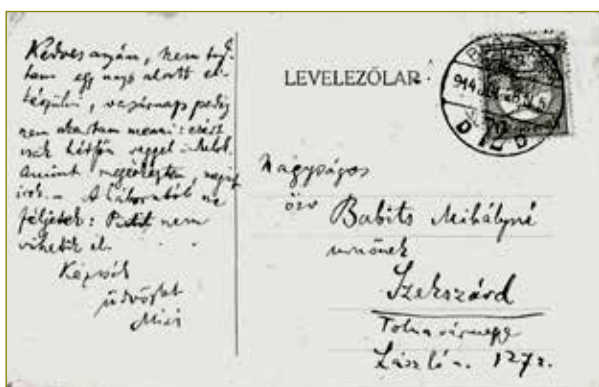 Kedves anyám, nem tud-
tam egy nap alatt el-
készülni, vasárnap pedig
nem akartam menni: ezért
csak hétfőn reggel indulok.
Amint megérkeztem, megint
írok. – A háborútól ne
féljetek: Pistit nem
vihetik el.
Kézcsók
üdvözlet
Misi
LEVELEZŐLAP
BUDAPEST
914
Nagyságos
özv Babits Mihályné
urnőnek
Szekszárd
Tolna vármegye
László u. 1272.